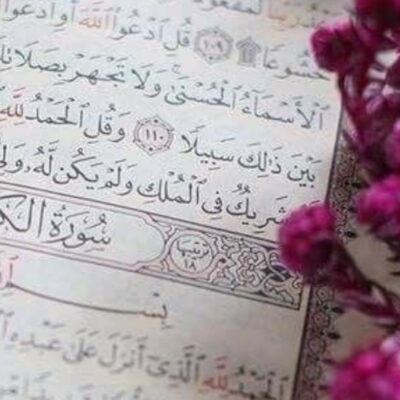 خُشُوعًا ۩ ١٠٩ قُلِ ٱدْعُوا۟ ٱللَّهَ أَوِ ٱدْعُوا۟
ٱلْأَسْمَآءُ ٱلْحُسْنَىٰ ۚ وَلَا تَجْهَرْ بِصَلَاتِكَ
بَيْنَ ذَٰلِكَ سَبِيلًا ١١٠ وَقُلِ ٱلْحَمْدُ لِلَّهِ
شَرِيكٌ فِى ٱلْمُلْكِ وَلَمْ يَكُن لَّهُۥ وَلِىٌّ
سُورَةُ الك ترتيبها ١٨
بِسْمِ
ٱلْحَمْدُ لِلَّهِ ٱلَّذِىٓ أَنزَلَ عَلَىٰ عَبْدِهِ